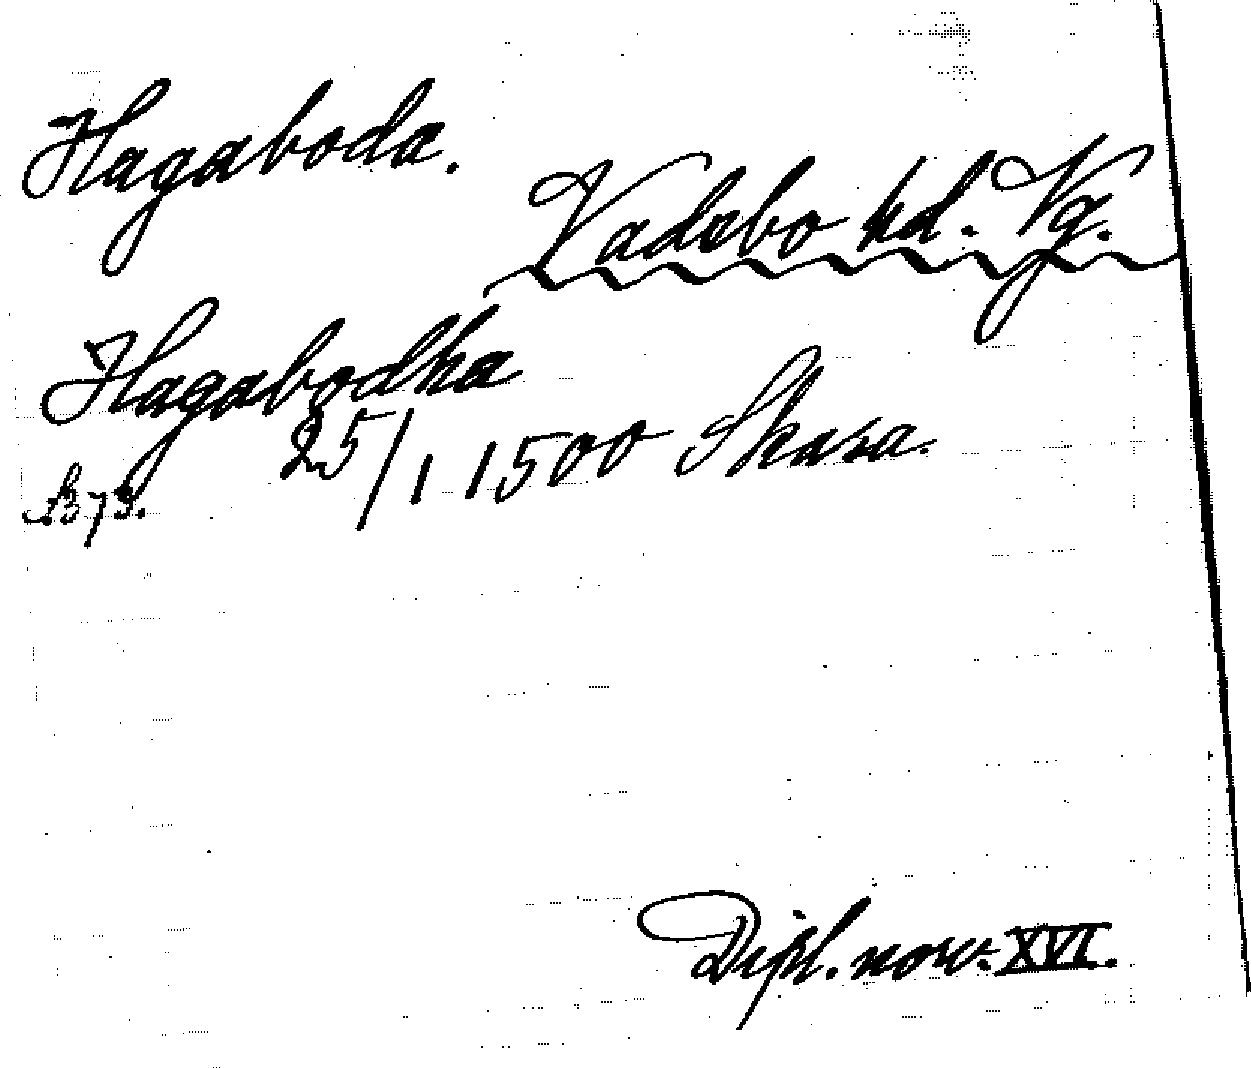 Hagaboda.
Vadsbo hd. Vg.
Hagabodha
25/1 1500 Skara.
s. 373.
Dipl. norv. XVI.